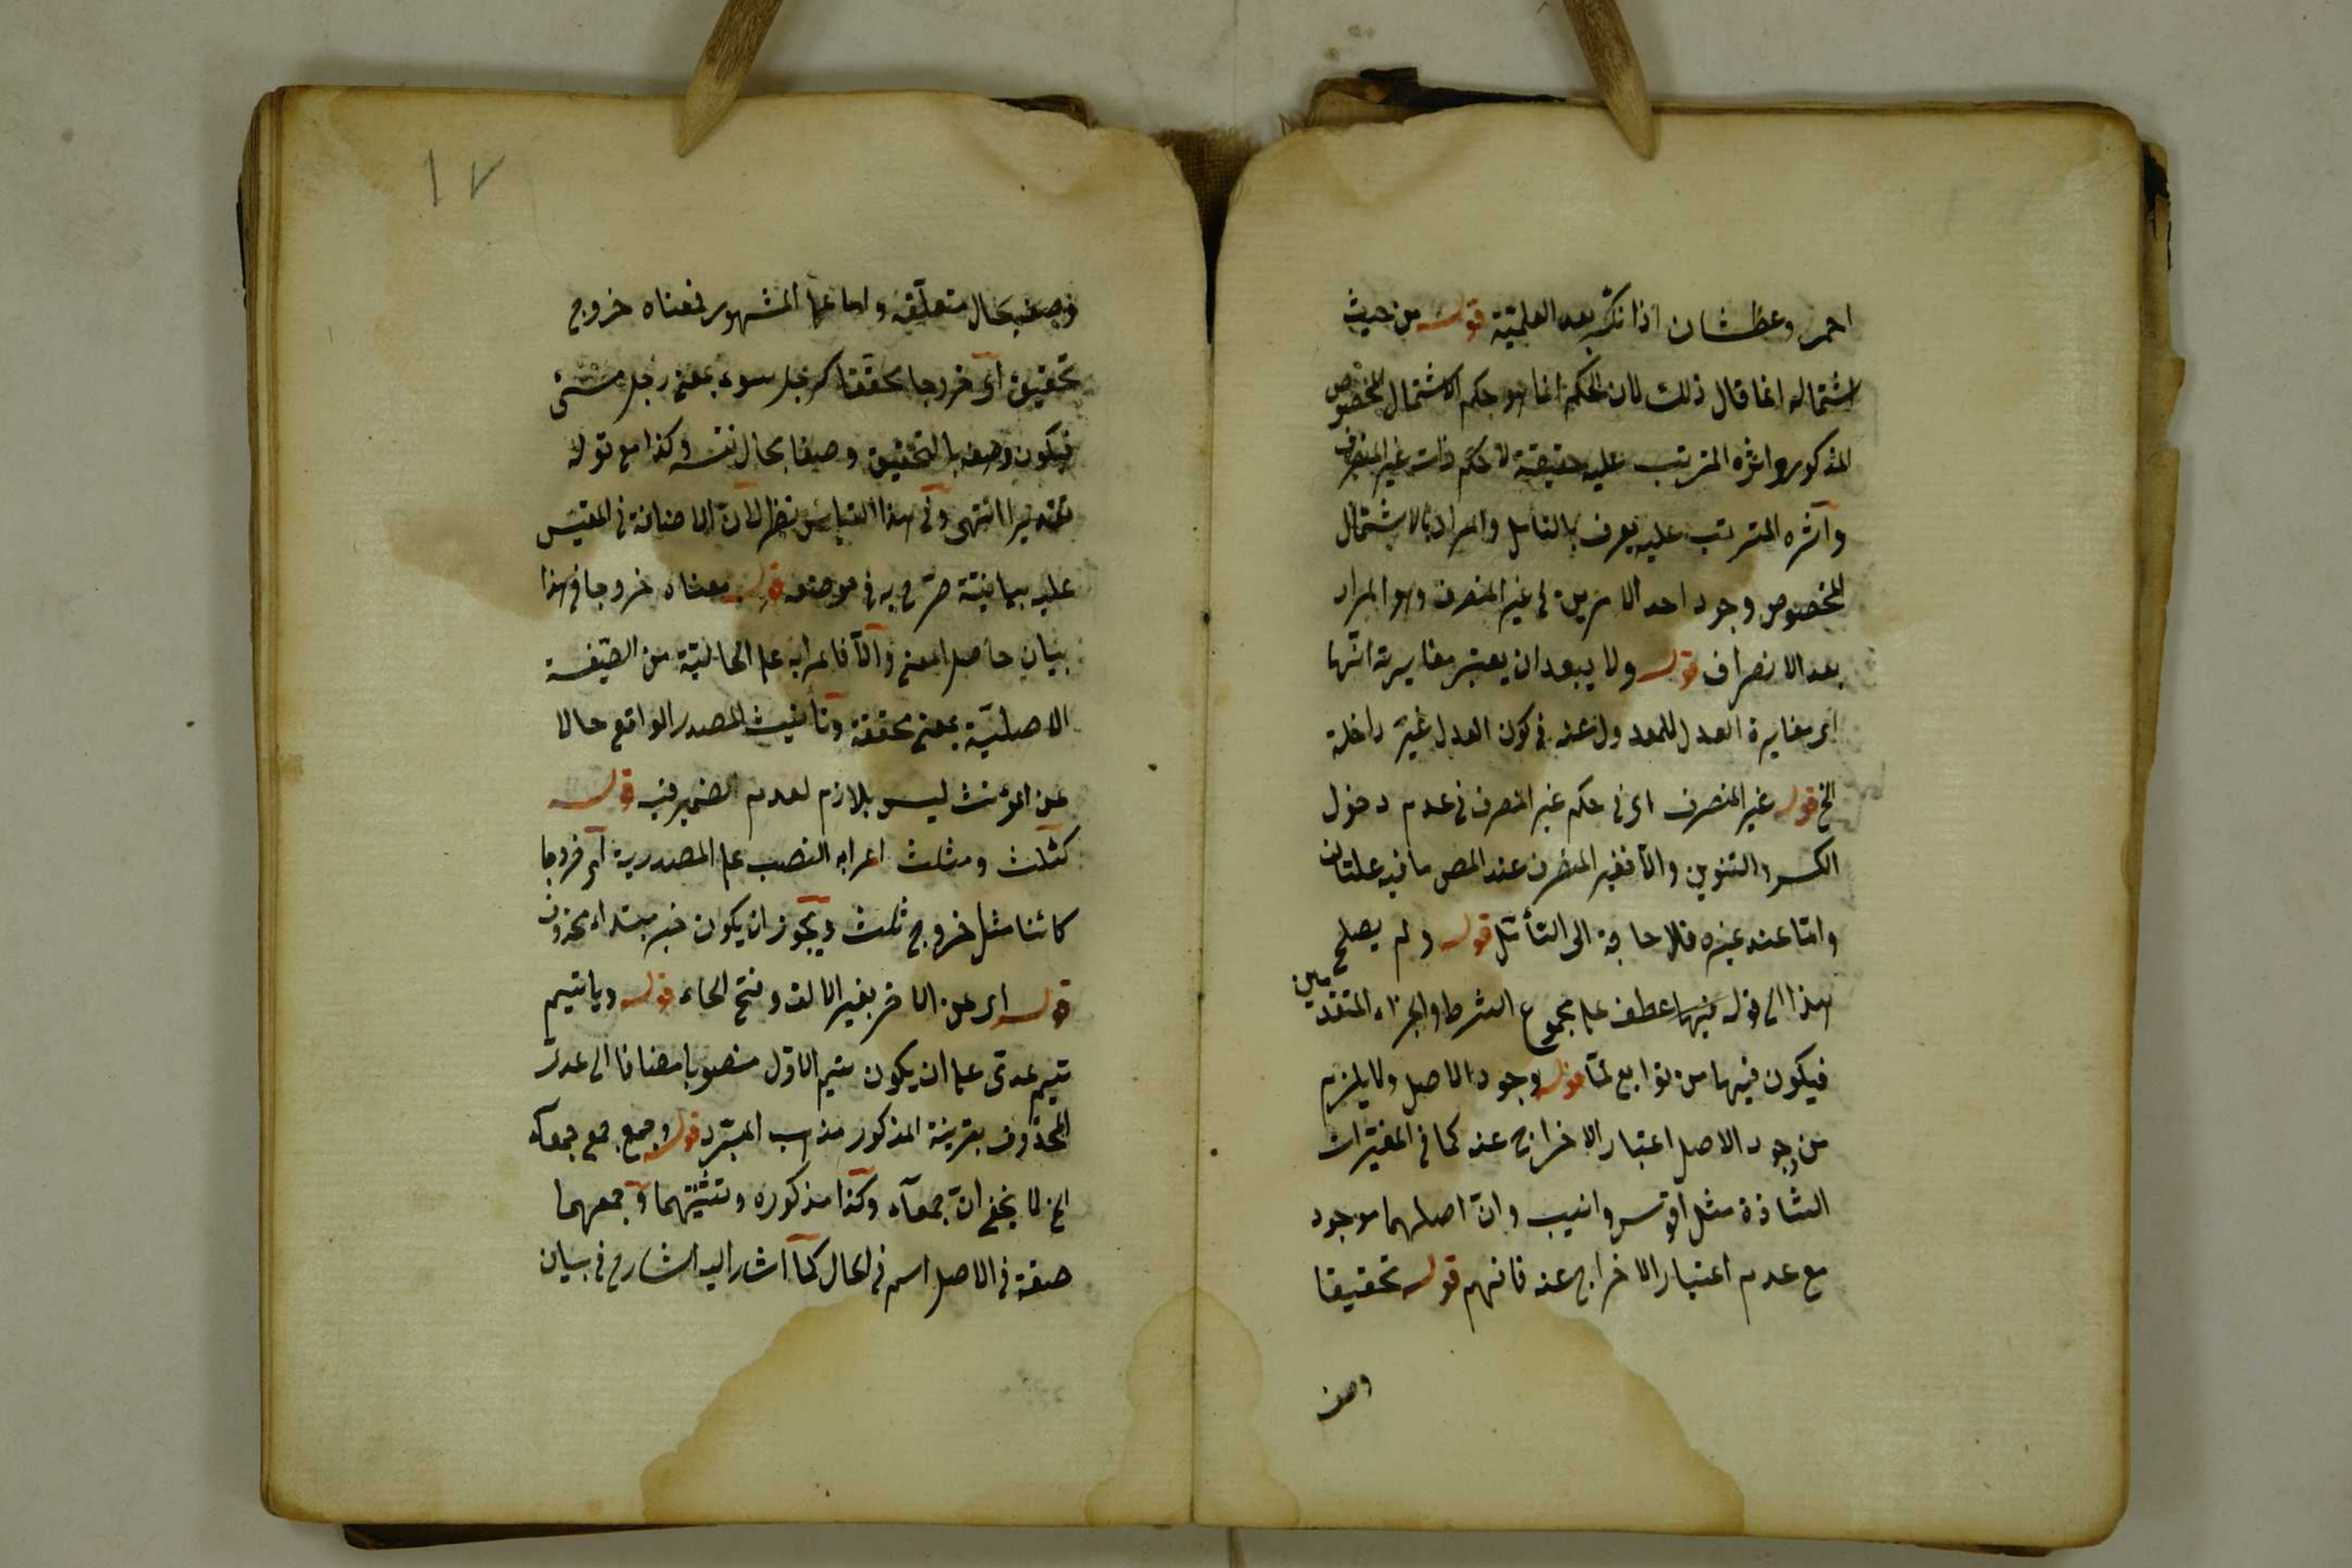 احمر وعطشان اذا نكر بعد العلمية قوله من حيث
اشتماله انما قال ذلك لان الحكم انما هو حكم الاشتمال المخصوص
المذكور واثره المترتب عليه حقيقة لا حكم ذات غير المنصرف
وآثره المترتب عليه يعرف بالتأمل والمراد بالاشتمال
المخصوص وجود احد الامرين في غير المنصرف وهو المراد
بعد الانصراف قوله ولا يبعد ان يعتبر مغايرته انها
اى مغايرة العدل للمعدول عنه في كون العدل غير داخلة
الخ قوله غير المنصرف اى في حكم غير المنصرف في عدم دخول
الكسر والتنوين والا فغير المنصرف عند المص ما فيه علتان
واما عند غيره فلا حاجة الى التأمل قوله ولم يصلح
هذا الى قوله فيهما عطف على مجموع الشرط والجزاء المتقدمين
فيكون فيهما من توابع لما قوله وجود الاصل ولا يلزم
من وجود الاصل اعتبار الاخراج عنه كما في المغيرات
الشاذة مثل اقوس وانيب وان اصلهما موجود
مع عدم اعتبار الاخراج عنه فافهم قوله تحقيقا
وصف
١٧
وصف بحال متعلقه واما على المشهور فمعناه خروج
تحقيق اى خروجا محققا كرجل سوء بمعنى رجل مسئ
فيكون وصفه بالتحقيق وصفا بحال نفسه وكذا مع قوله
تقديرا انتهى وفى هذا القياس نظر لان الاضافة في المقيس
عليه بيانية صرح به في موضعه قوله معناه خروجا في هذا
بيان حاصل المعنى والا فاعرابه على الحالية من الصيغة
الاصلية بمعنى محققة وتأنيث المصدر الواقع حالا
عن المؤنث ليس بلازم لعدم الضمير فيه قوله
كثلث ومثلث اعرابه النصب على المصدرية اى خروجا
كائنا مثل خروج ثلث ويجوز ان يكون خبر مبتداء محذوف
قوله اى عن الاخر بغير الالف وفتح الخاء قوله ويا تيم
تيم عدى على ان يكون تيم الاول منصوبا مضافا الى عدى
المحذوف بقرينة المذكور مذهب المبرد قوله وجمع جمع جمعآء
الخ لا يخفى ان جمعآء وكذا مذكوره وتثنيتهما وجمعهما
صفة في الاصل اسم في الحال كما اشار اليه الشارح في بيان